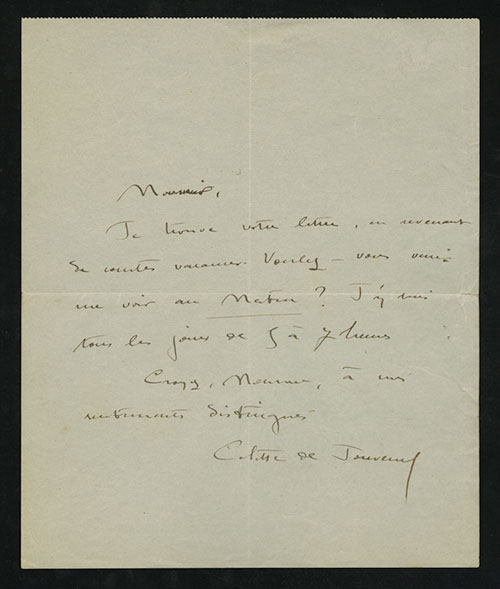 Monsieur,
Je trouve votre lettre, en revenant
de courtes vacances. Voulez-vous venir
me voir au Matin ? J'y suis
tous les jours de 5 à 7 heures
Croyez, Monsieur, à mes
sentiments distingués
Colette de Jouvenel